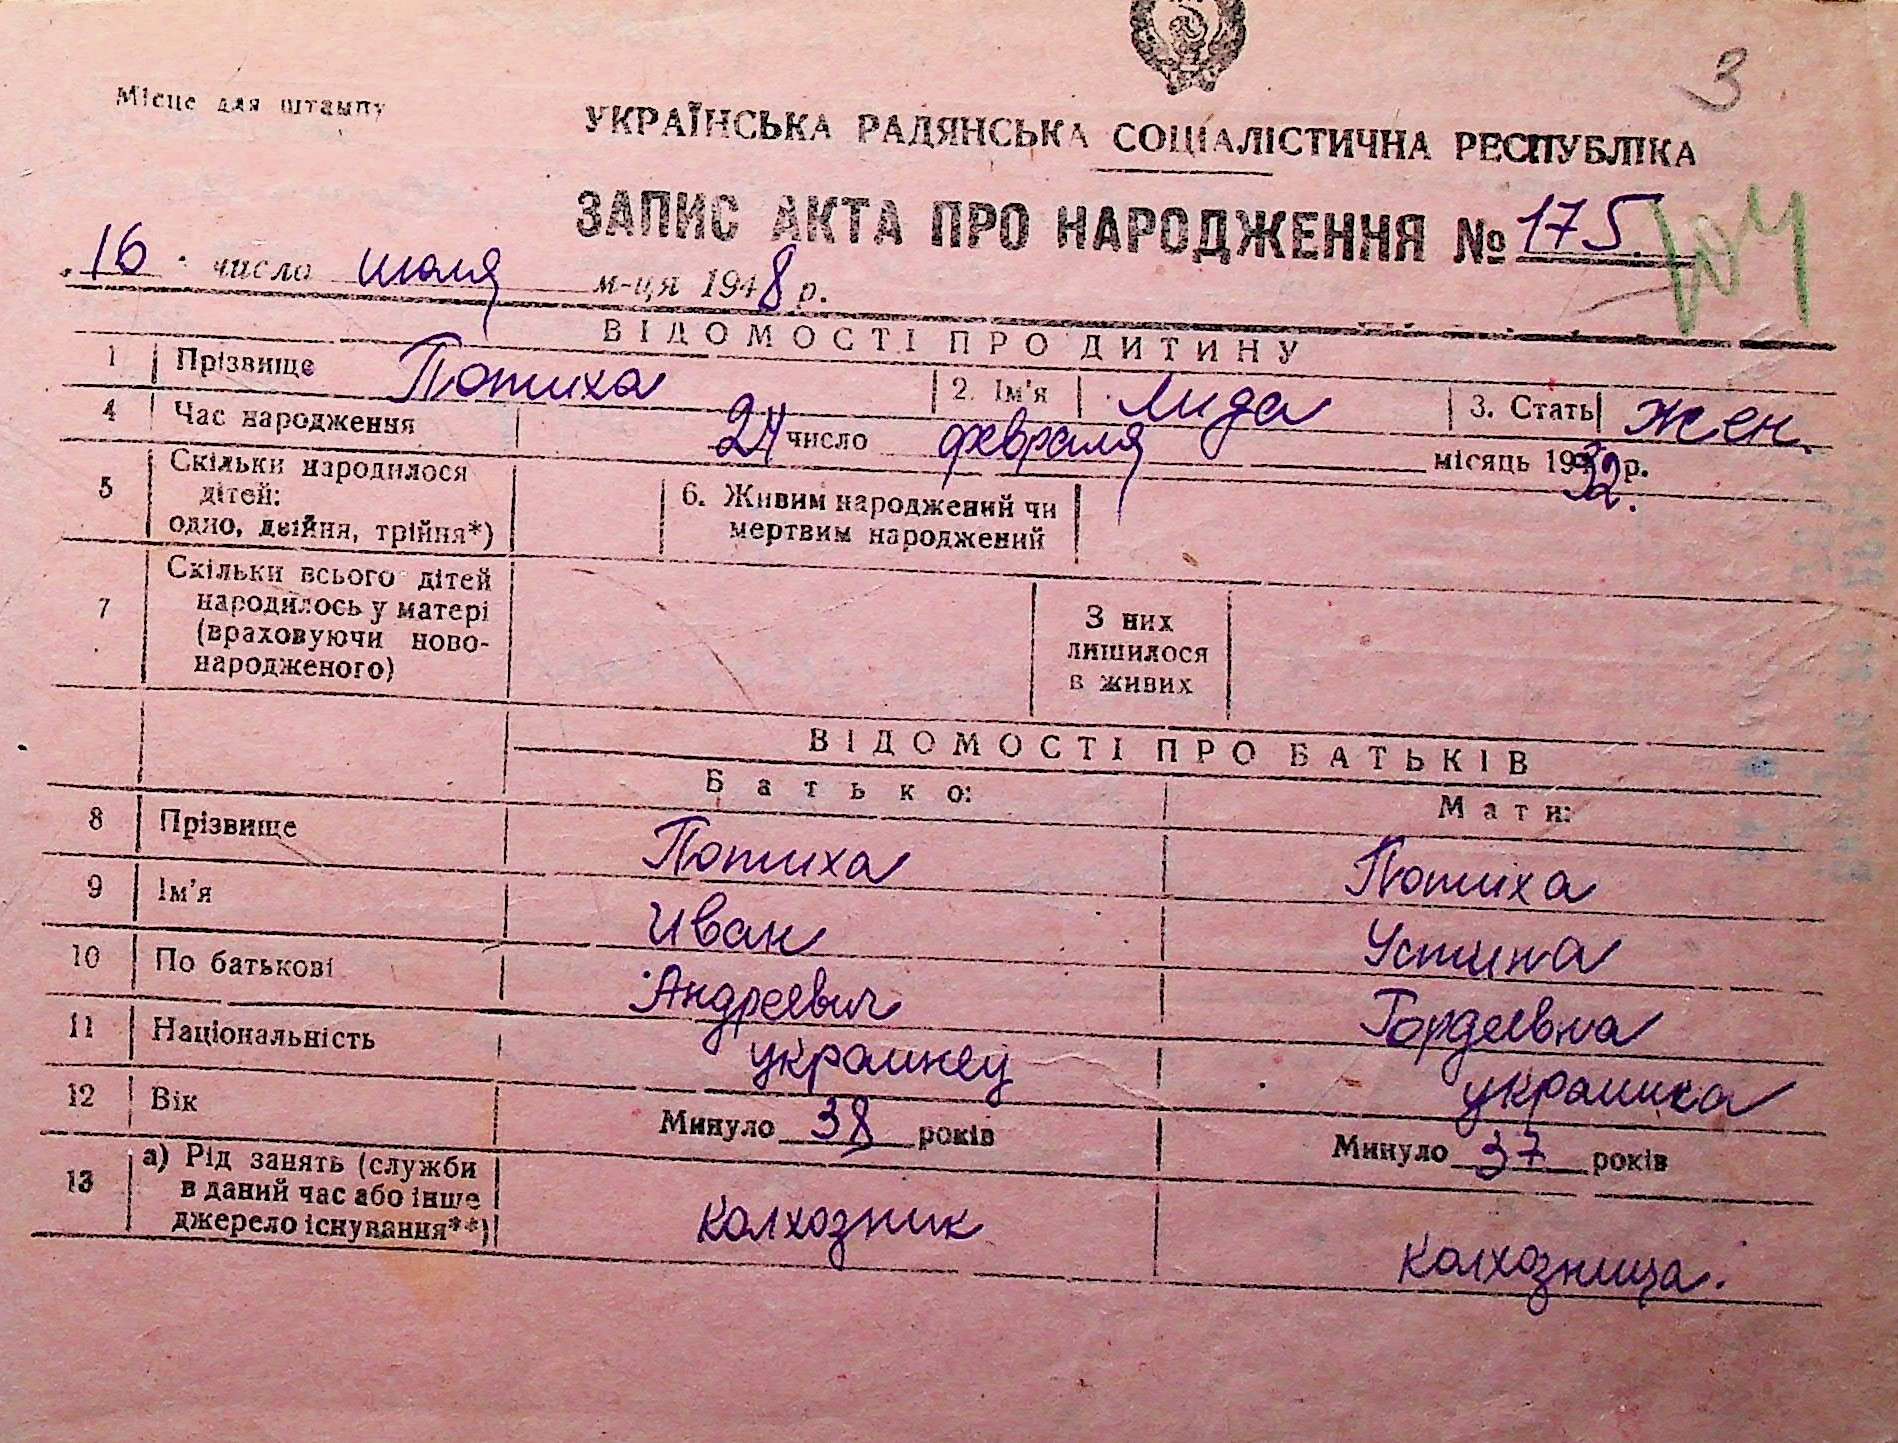 3
Місце для штампу
УКРАЇНСЬКА РАДЯНСЬКА СОЦІАЛІСТИЧНА РЕСПУБЛІКА
ЗАПИС АКТА ПРО НАРОДЖЕННЯ № 175.
16 число июля м-ця 1948 р.
ВІДОМОСТІ ПРО ДИТИНУ
1 Прізвище Потиха 2. Ім'я Лида 3. Стать Жен.
4 Час народження 24 число февраля місяць 1932 р.
5 Скільки народилося
дітей:
одно, двійня, трійня*)
6. Живим народжений чи
мертвим народжений
7 Скільки всього дітей
народилось у матері
(враховуючи ново-
народженого)
З них
лишилося
в живих
ВІДОМОСТІ ПРО БАТЬКІВ
Батько: Мати:
8 Прізвище Потиха Потиха
9 Ім'я Иван Устина
10 По батькові Андреевич Гордеевна
11 Національність украинец украинка
12 Вік Минуло 38 років Минуло 37 років
13 а) Рід занять (служби
в даний час або інше
джерело існування**)
колхозник колхозница.